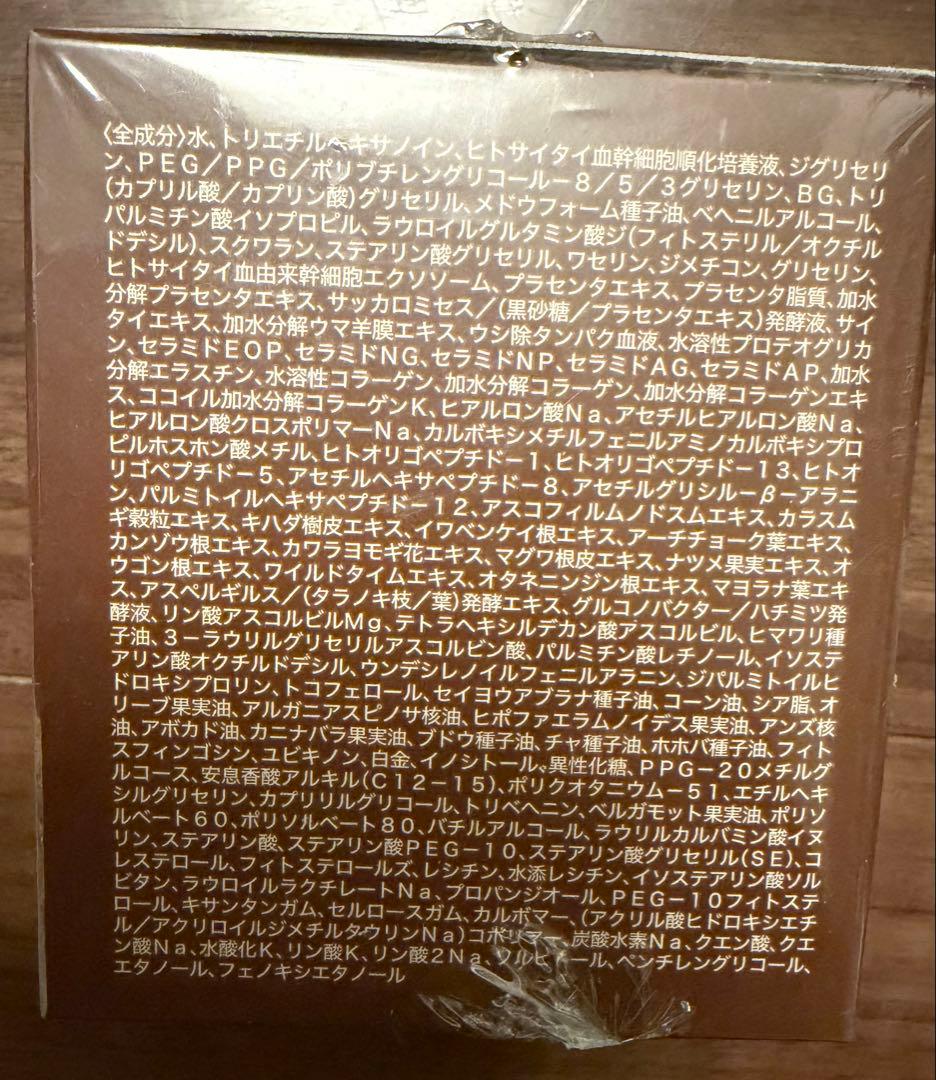 〈全成分〉水、トリエチルヘキサノイン、ヒトサイタイ血幹細胞順化培養液、ジグリセリ
ン、ＰＥＧ／ＰＰＧ／ポリブチレングリコールー８／５／３グリセリン、ＢＧ、トリ
(カプリル酸／カプリン酸)グリセリル、メドウフォーム種子油、ベヘニルアルコール、
パルミチン酸イソプロピル、ラウロイルグルタミン酸ジ(フィトステリル／オクチル
ドデシル)、スクワラン、ステアリン酸グリセリル、ワセリン、ジメチコン、グリセリン、
ヒトサイタイ血由来幹細胞エクソソーム、プラセンタエキス、プラセンタ脂質、加水
分解プラセンタエキス、サッカロミセス／(黒砂糖／プラセンタエキス)発酵液、サイ
タイエキス、加水分解ウマ羊膜エキス、ウシ除タンパク血液、水溶性プロテオグリカ
ン、セラミドＥＯＰ、セラミドＮＧ、セラミドＮＰ、セラミドＡＧ、セラミドＡＰ、加水
分解エラスチン、水溶性コラーゲン、加水分解コラーゲン、加水分解コラーゲンエキ
ス、ココイル加水分解コラーゲンＫ、ヒアルロン酸Ｎａ、アセチルヒアルロン酸Ｎａ、
ヒアルロン酸クロスポリマーＮａ、カルボキシメチルフェニルアミノカルボキシプロ
ピルホスホン酸メチル、ヒトオリゴペプチドー１、ヒトオリゴペプチドー１３、ヒトオ
リゴペプチドー５、アセチルヘキサペプチドー８、アセチルグリシルーβーアラニ
ン、パルミトイルヘキサペプチドー１２、アスコフィルムノドスムエキス、カラスム
ギ穀粒エキス、キハダ樹皮エキス、イワベンケイ根エキス、アーチチョーク葉エキス、
カンゾウ根エキス、カワラヨモギ花エキス、マグワ根皮エキス、ナツメ果実エキス、オ
ウゴン根エキス、ワイルドタイムエキス、オタネニンジン根エキス、マヨラナ葉エキ
ス、アスペルギルス／(タラノキ枝／葉)発酵エキス、グルコノバクター／ハチミツ発
酵液、リン酸アスコルビルＭｇ、テトラヘキシルデカン酸アスコルビル、ヒマワリ種
子油、３ーラウリルグリセリルアスコルビン酸、パルミチン酸レチノール、イソステ
アリン酸オクチルドデシル、ウンデシレノイルフェニルアラニン、ジパルミトイルヒ
ドロキシプロリン、トコフェロール、セイヨウアブラナ種子油、コーン油、シア脂、オ
リーブ果実油、アルガニアスピノサ核油、ヒポファエラムノイデス果実油、アンズ核
油、アボカド油、カニナバラ果実油、ブドウ種子油、チャ種子油、ホホバ種子油、フィト
スフィンゴシン、ユビキノン、白金、イノシトール、異性化糖、ＰＰＧー２０メチルグ
ルコース、安息香酸アルキル(Ｃ１２ー１５)、ポリクオタニウムー５１、エチルヘキ
シルグリセリン、カプリリルグリコール、トリベヘニン、ベルガモット果実油、ポリソ
ルベート６０、ポリソルベート８０、バチルアルコール、ラウリルカルバミン酸イヌ
リン、ステアリン酸、ステアリン酸ＰＥＧー１０、ステアリン酸グリセリル(ＳＥ)、コ
レステロール、フィトステロールズ、レシチン、水添レシチン、イソステアリン酸ソル
ビタン、ラウロイルラクチレートＮａ、プロパンジオール、ＰＥＧー１０フィトステ
ロール、キサンタンガム、セルロースガム、カルボマー、(アクリル酸ヒドロキシエチ
ル／アクリロイルジメチルタウリンＮａ)コポリマー、炭酸水素Ｎａ、クエン酸、クエ
ン酸Ｎａ、水酸化Ｋ、リン酸Ｋ、リン酸２Ｎａ、ペンチレングリコール、
エタノール、フェノキシエタノール